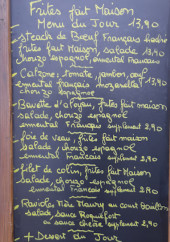 Frites fait Maison
Menu du Jour 13,90
Steack de Bœuf Français haché
frites fait Maison, salade 13,90
chorizo espagnol, emmental Français
Calzone: tomate, jambon, œuf
emmental français, mozzarella 13,90
chorizo espagnol
Bavette d'aloyau, frites fait maison
salade, chorizo espagnol
emmental Français supplément 2,90
foie de veau, frites fait maison
salade, chorizo espagnol
emmental Francais supplément 2,90
filet de colin, frites fait Maison
salade, chorizo espagnol
emmental Francais supplément 2,90
Ravioles au court Bouillon
salade, sauce Roquefort
ou sauce supplément 2,90
+ Dessert du Jour